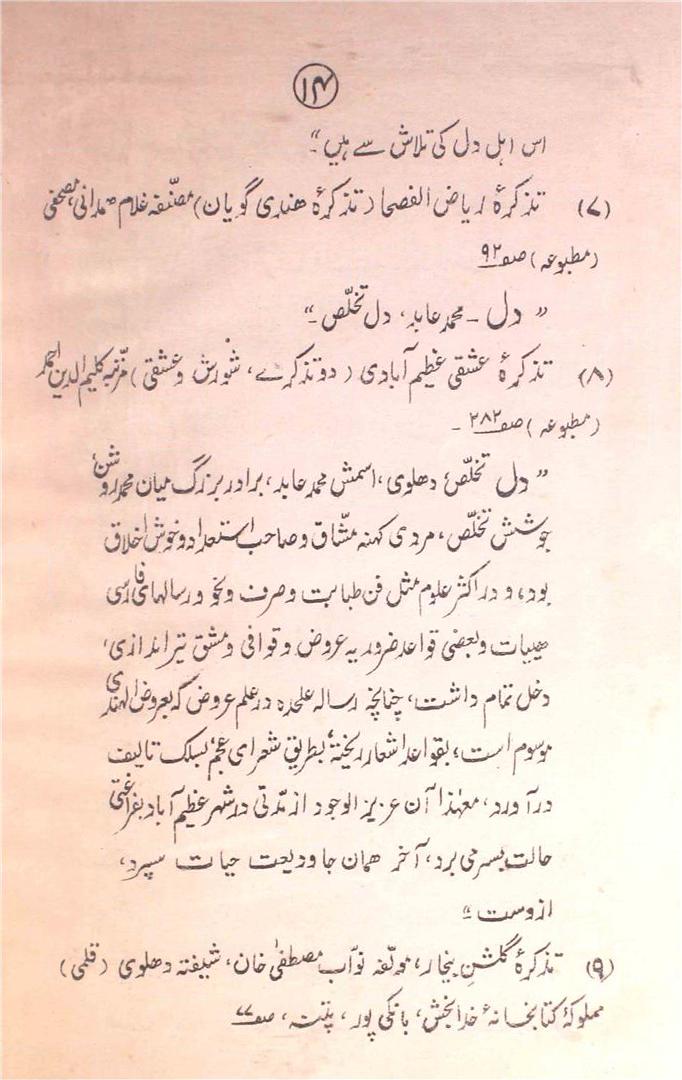 ۱۴
اس اهل دل کی تلاش سے ہیں“۔
(۷) تذکرۂ ریاض الفصحا (تذکرۂ هندی گویان) مصنّفہ غلام همدانی، مصحفی
(مطبوعہ) صفـ ۹۲
” دل ۔ محمد عابد، دل تخلّص ۔“
(۸) تذکرۂ عشقی عظیم آبادی (دو تذکرے، شورش و عشقی) مرتّبہ کلیم الدین احمد
(مطبوعہ) صفـ ۲۸۲ ۔
” دل تخلّص دهلوی، اسمش محمد عابد، برادر بزرگ میان محمد روشن
جوشش تخلّص، مردی کهنه مشّاق و صاحب استعداد و خوش اخلاق
بود، و در اکثر علوم مثل فن طبابت و صرف و نحو و رسالهای فارسی
هیبات و بعضی قواعد ضروریه عروض و قوافی و مشق تیر اندازی،
دخل تمام داشت، چنانچه رساله علحده در علم عروض که بعروض الهندی
موسوم است، بقواعد اشعار ریخته، بطریق شعرای عجم بسلک تالیف
در آورد، معهٰذا آن عزیز الوجود از مدّتی در شهر عظیم آباد بفراغتی
حالت بسر می برد، آخر همان جا ودیعت حیات سپرد،
ازوست “
(۹) تذکرۂ گلشن بیخار، مولفہ نوّاب مصطفٰی خان، شیفتہ دهلوی (قلمی)
مملوکۂ کتابخانۂ خدا بخش، بانکی پور، پٹنہ، صفـ ۷۷